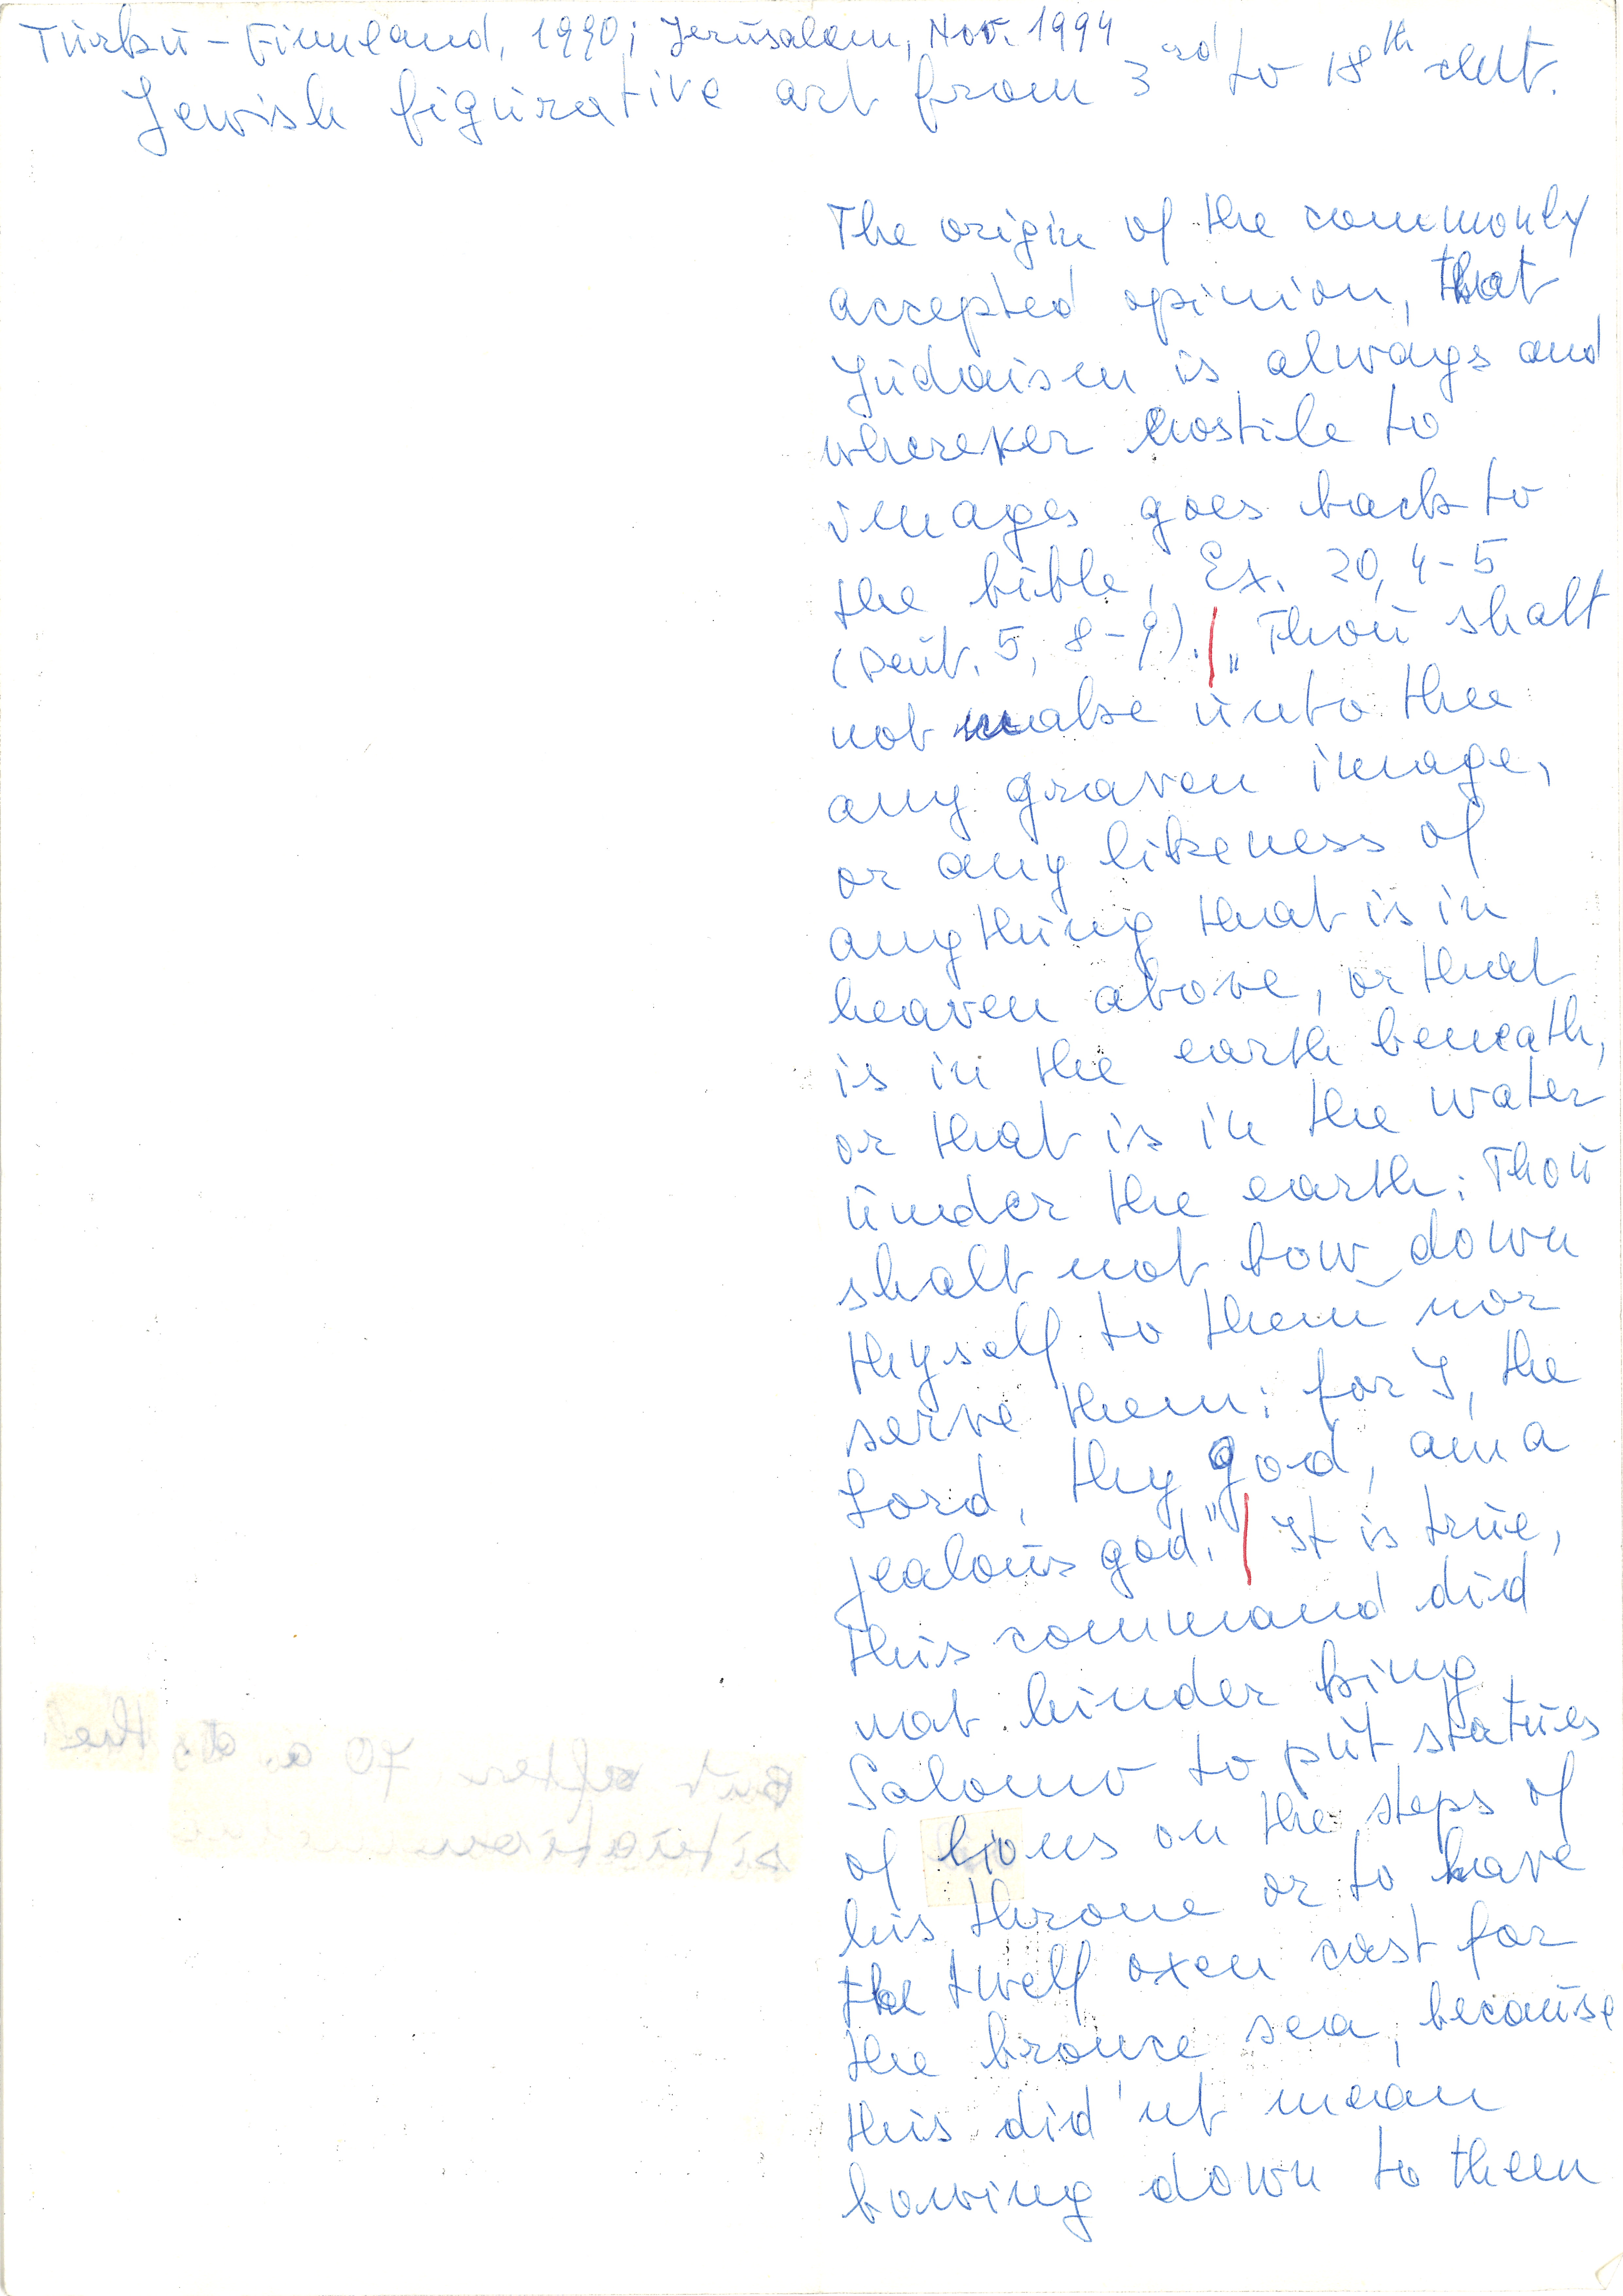 Turku - Finneland, 1990; Jerusalem, Nov. 1994
Jewish figurative art from 3rd to 18th cent.
The origin of the commonly
accepted opinion, that
Judaism is always and
wherever hostile to
images goes back to
the bible, Ex. 20, 4-5
(Deut. 5, 8-9). | „Thou shalt
not make unto thee
any graven image,
or any likeness of
anything that is in
heaven above, or that
is in the earth beneath,
or that is in the water
under the earth: Thou
shalt not bow down
thyself to them nor
serve them: for I, the
Lord, thy god, am a
jealous god." | It is true,
this command did
not hinder king
Salomo to put statues
of lions on the steps of
his throne or to have
the twelf oxen cast for
the bronce sea, because
this did'nt mean
bowing down to them
But after 70 a. d. the
situation